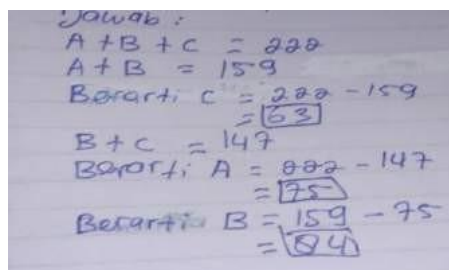 Jawab :
A + B + C = 222
A + B = 159
Berarti C = 222 - 159
= 63
B + C = 147
Berarti A = 222 - 147
= 75
Berarti B = 159 - 75
= 84